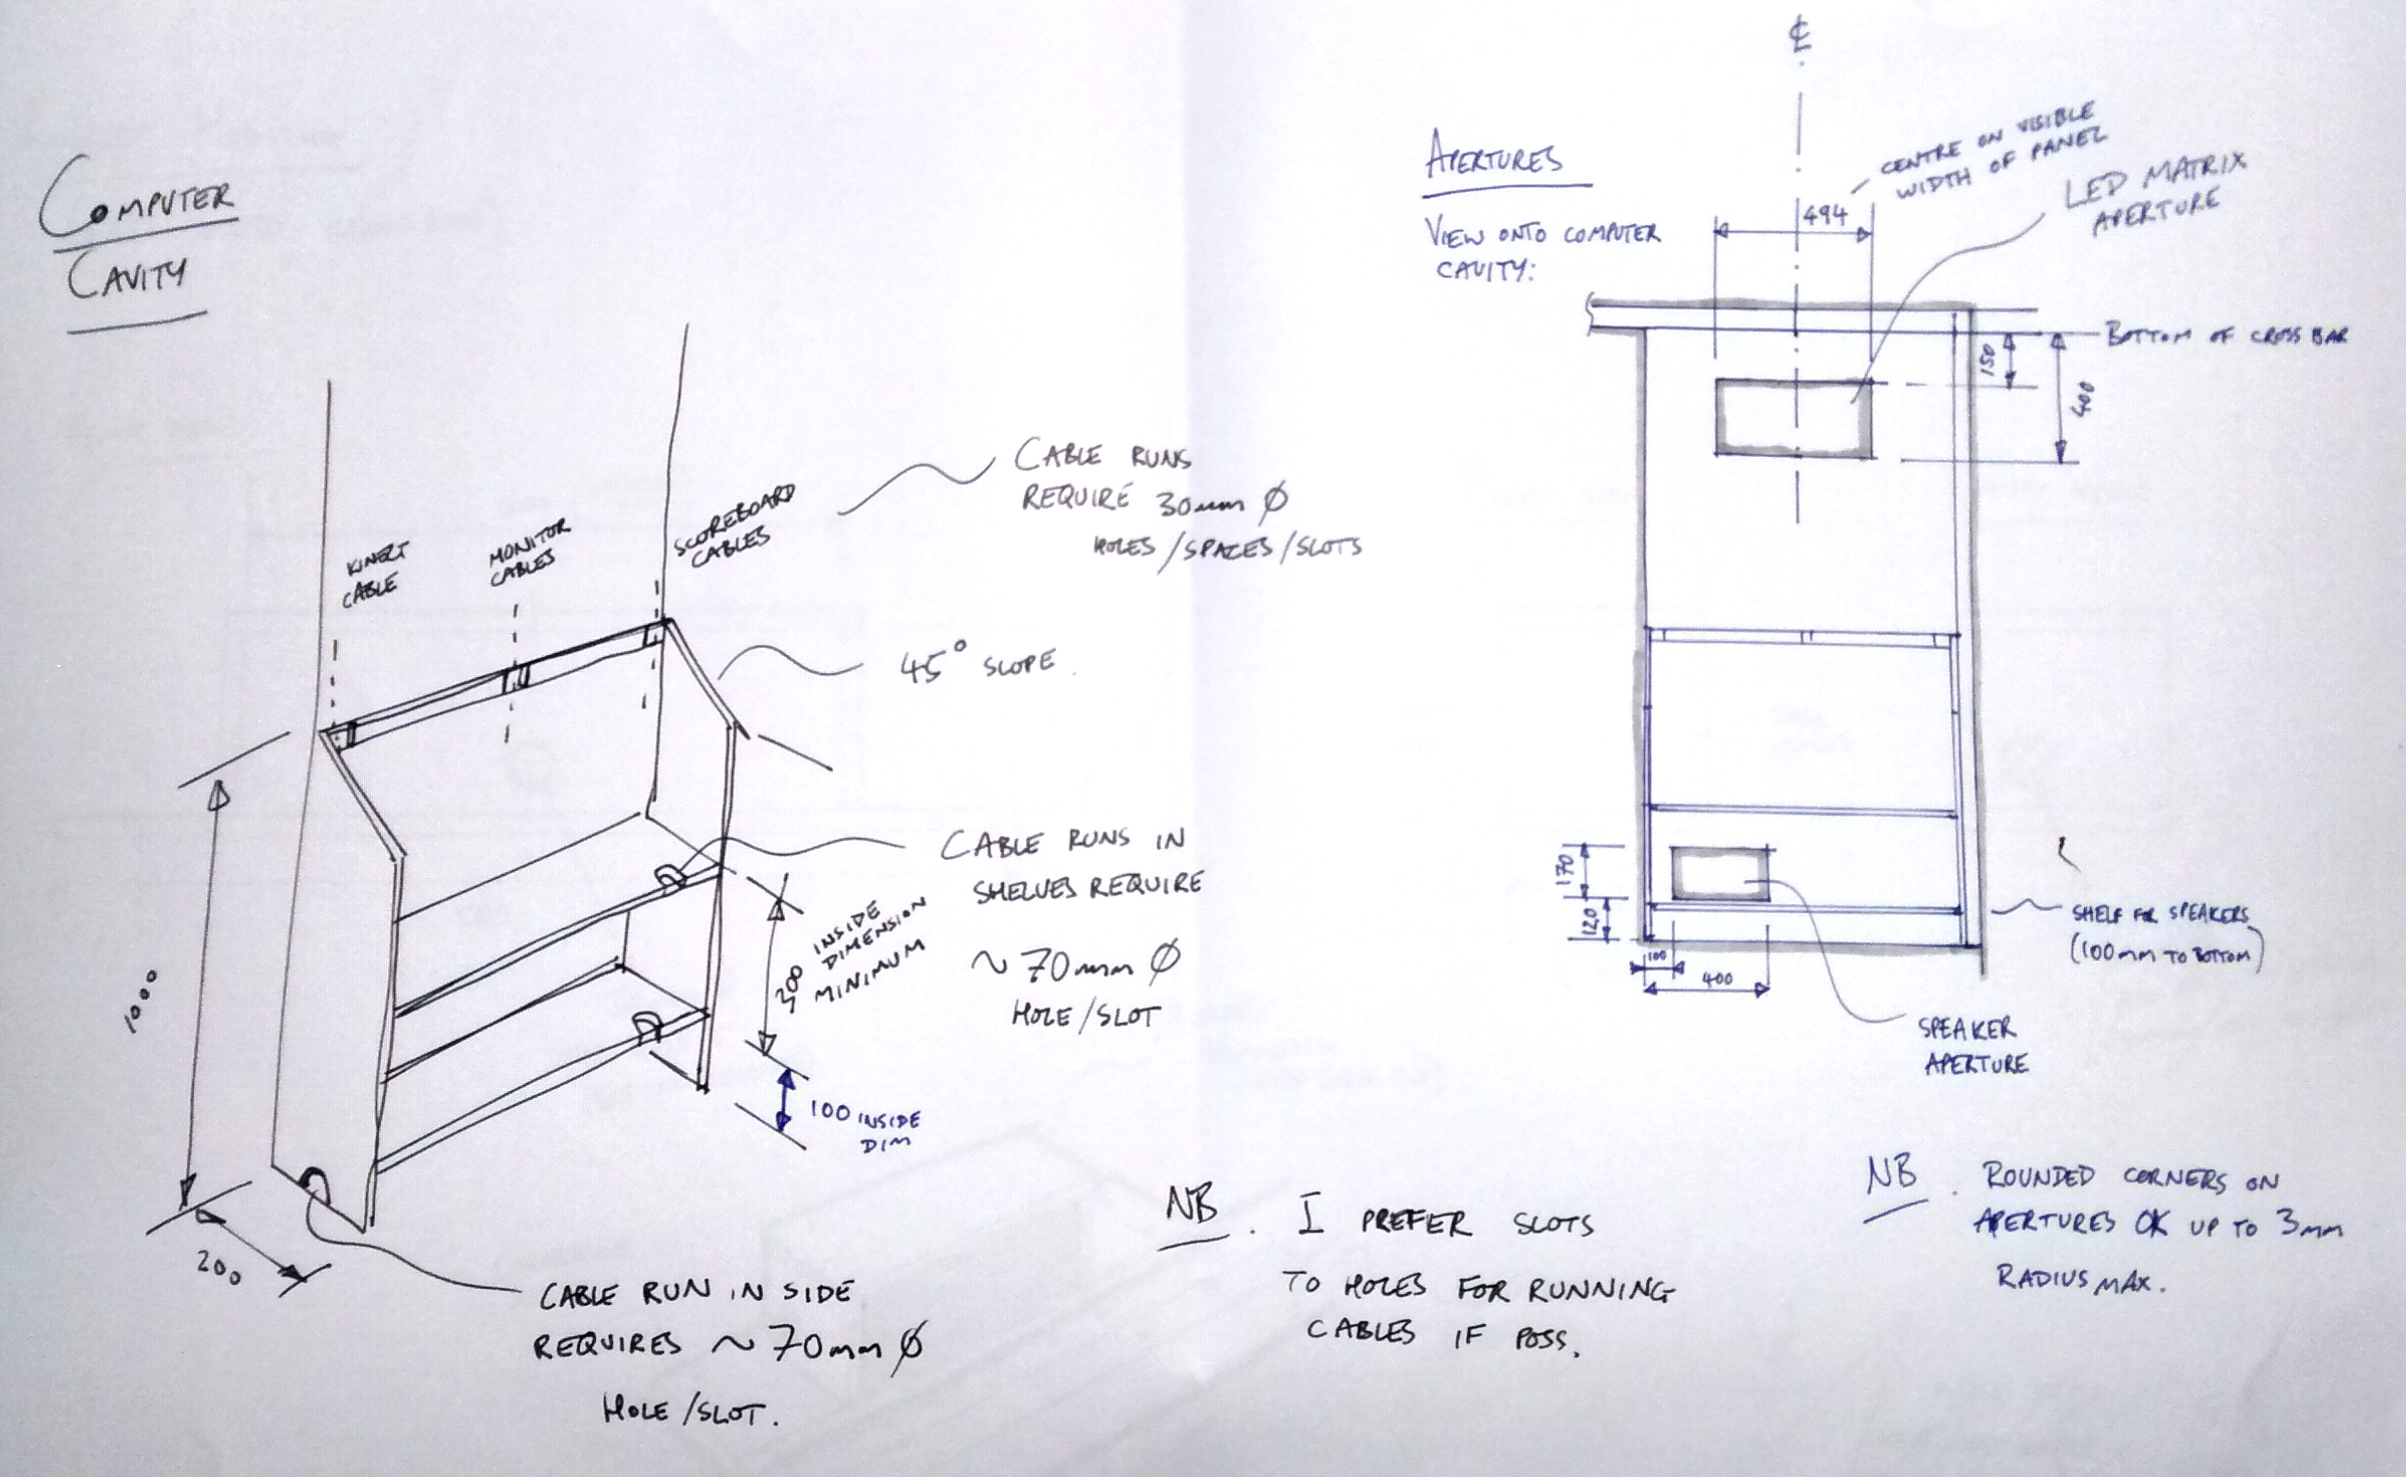 COMPUTER
CAVITY
KINECT
CABLE
MONITOR
CABLES
SCOREBOARD
CABLES
CABLE RUNS
REQUIRE 30mm Ø
HOLES/SPACES/SLOTS
45° SLOPE.
1000
200
CABLE RUNS IN
SHELVES REQUIRE
~ 70mm Ø
HOLE/SLOT
INSIDE
DIMENSION
MINIMUM
100 INSIDE
DIM
CABLE RUN IN SIDE
REQUIRES ~ 70mm Ø
HOLE/SLOT.
NB. I PREFER SLOTS
TO HOLES FOR RUNNING
CABLES IF POSS.
APERTURES
VIEW ONTO COMPUTER
CAVITY:
℄
CENTRE ON VISIBLE
WIDTH OF PANEL
494
LED MATRIX
APERTURE
BOTTOM OF CROSS BAR
150
400
170
120
100
400
SHELF FOR SPEAKERS
(100mm TO BOTTOM)
SPEAKER
APERTURE
NB. ROUNDED CORNERS ON
APERTURES OK UP TO 3mm
RADIUS MAX.